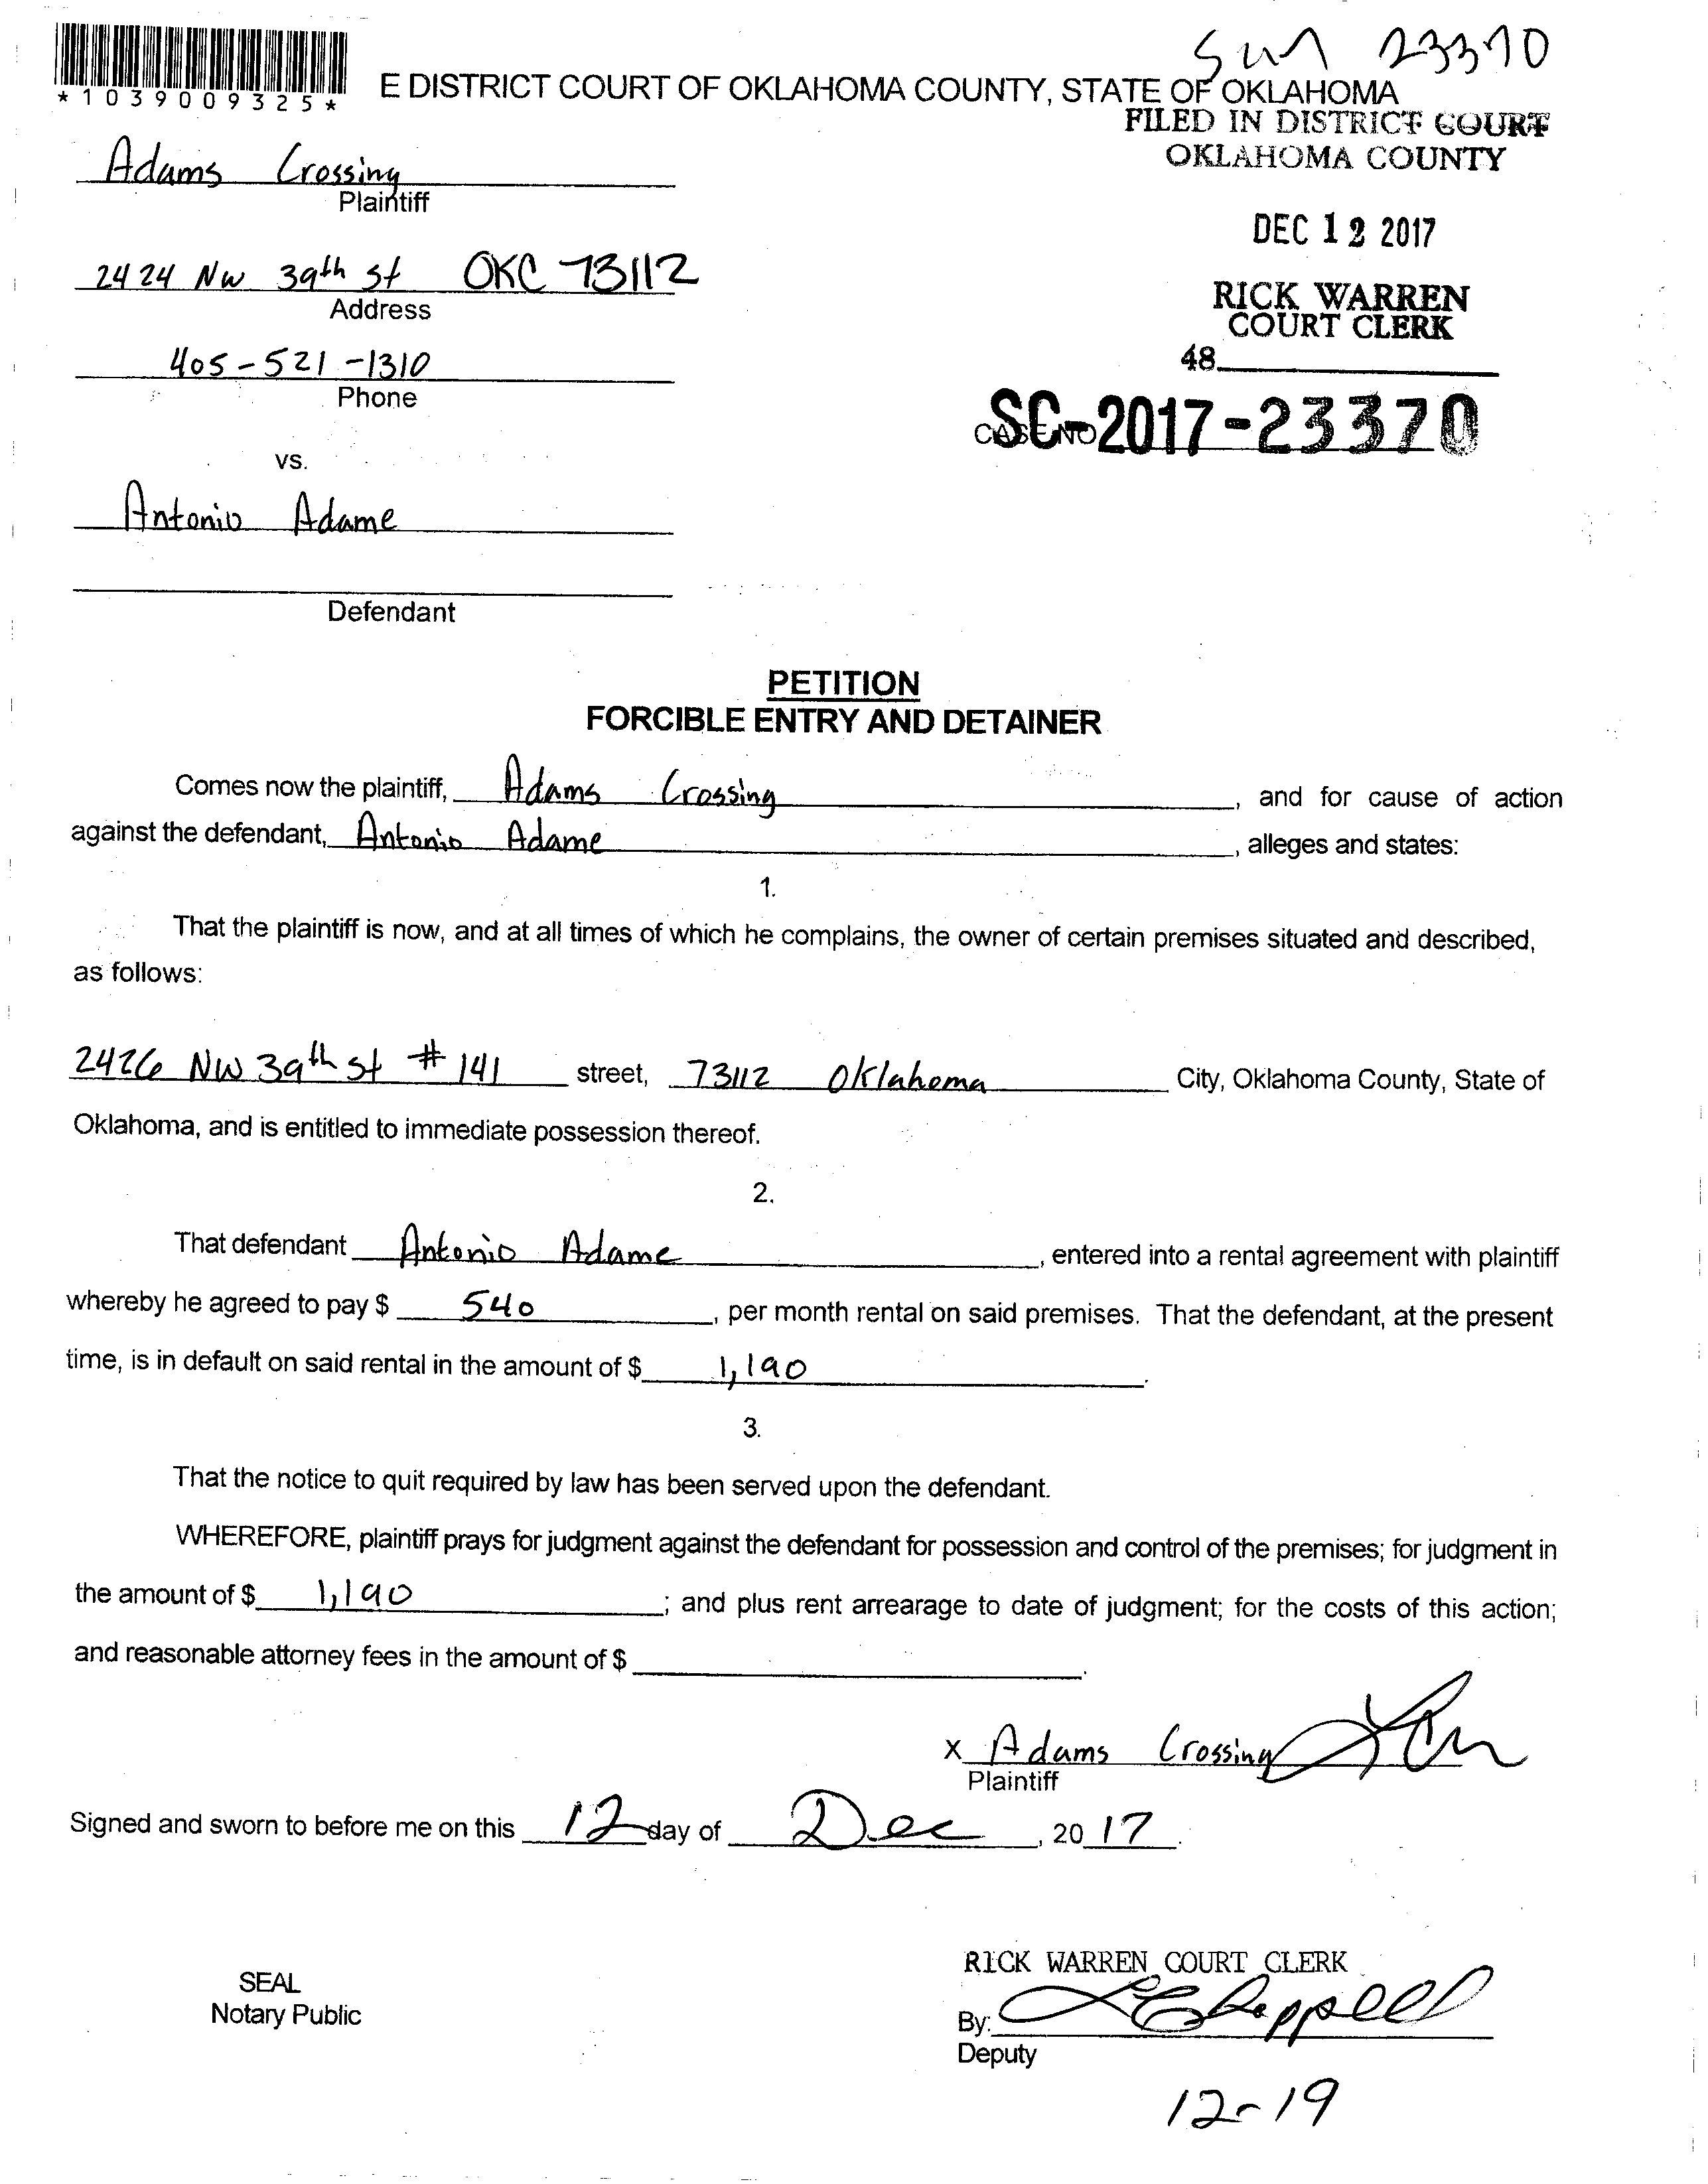 Sum 23370
*1039009325*
E DISTRICT COURT OF OKLAHOMA COUNTY, STATE OF OKLAHOMA
FILED IN DISTRICT COURT
OKLAHOMA COUNTY
Adams Crossing
Plaintiff
DEC 12 2017
2424 NW 39th St OKC 73112
Address
RICK WARREN
COURT CLERK
48
405-521-1310
Phone
CASE NO SC-2017-23370
vs.
Antonio Adame
Defendant
PETITION
FORCIBLE ENTRY AND DETAINER
Comes now the plaintiff, Adams Crossing, and for cause of action
against the defendant, Antonio Adame, alleges and states:
1.
That the plaintiff is now, and at all times of which he complains, the owner of certain premises situated and described,
as follows:
2426 NW 39th St # 141 street, 73112 Oklahoma City, Oklahoma County, State of
Oklahoma, and is entitled to immediate possession thereof.
2.
That defendant Antonio Adame, entered into a rental agreement with plaintiff
whereby he agreed to pay $ 540, per month rental on said premises. That the defendant, at the present
time, is in default on said rental in the amount of $ 1,190.
3.
That the notice to quit required by law has been served upon the defendant.
WHEREFORE, plaintiff prays for judgment against the defendant for possession and control of the premises; for judgment in
the amount of $ 1,190; and plus rent arrearage to date of judgment; for the costs of this action;
and reasonable attorney fees in the amount of $ .
X Adams Crossing
Plaintiff
Signed and sworn to before me on this 12 day of Dec, 2017.
RICK WARREN COURT CLERK
SEAL
Notary Public
By: Chappell
Deputy
12-19